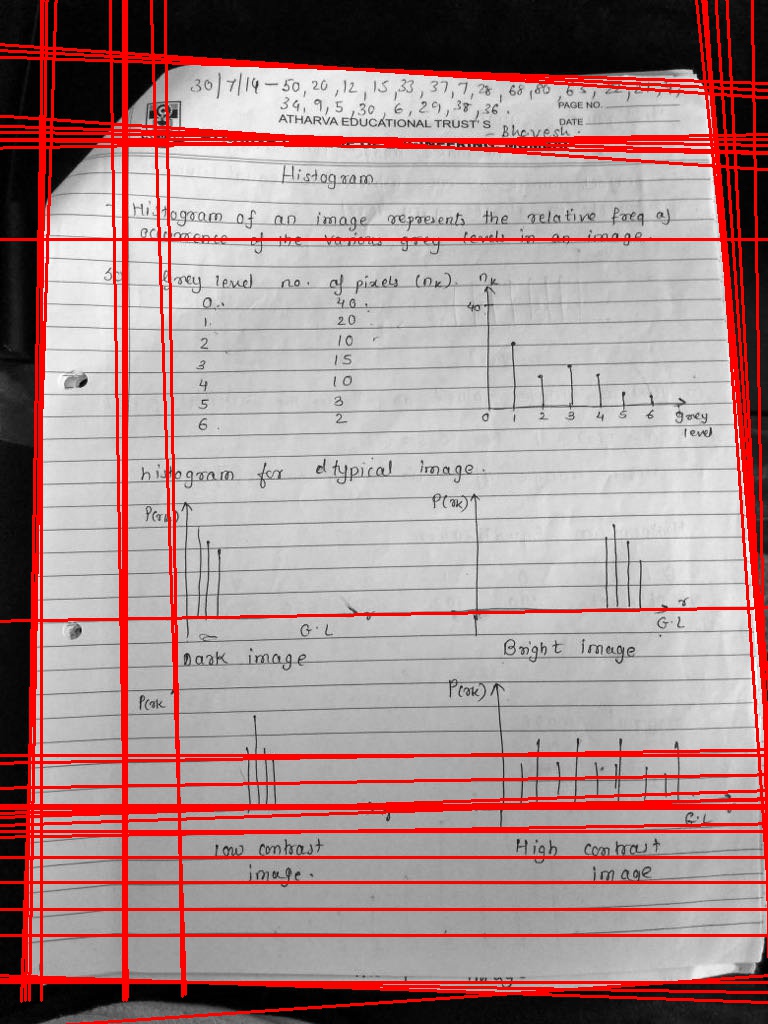 30/7/14 - 50, 20, 12, 15, 33, 37, 7, 28, 68, 80, 63, 22,
34, 9, 5, 30, 6, 29, 38, 36.
PAGE NO.
ATHARVA EDUCATIONAL TRUST'S
DATE
- Bhavesh.
Histogram
- Histogram of an image represents the relative freq of
occurrence of the various grey levels in an image.
Grey level no. of pixels (nk).
0 40
1 20
2 10
3 15
4 10
5 3
6 2
nk
40
0 1 2 3 4 5 6 grey
level
histogram for d typical image.
P(rk)
G.L
Dark image
P(rk)
r
G.L
Bright image
P(rk
low contrast
image.
P(rk)
G.L
High contrast
image